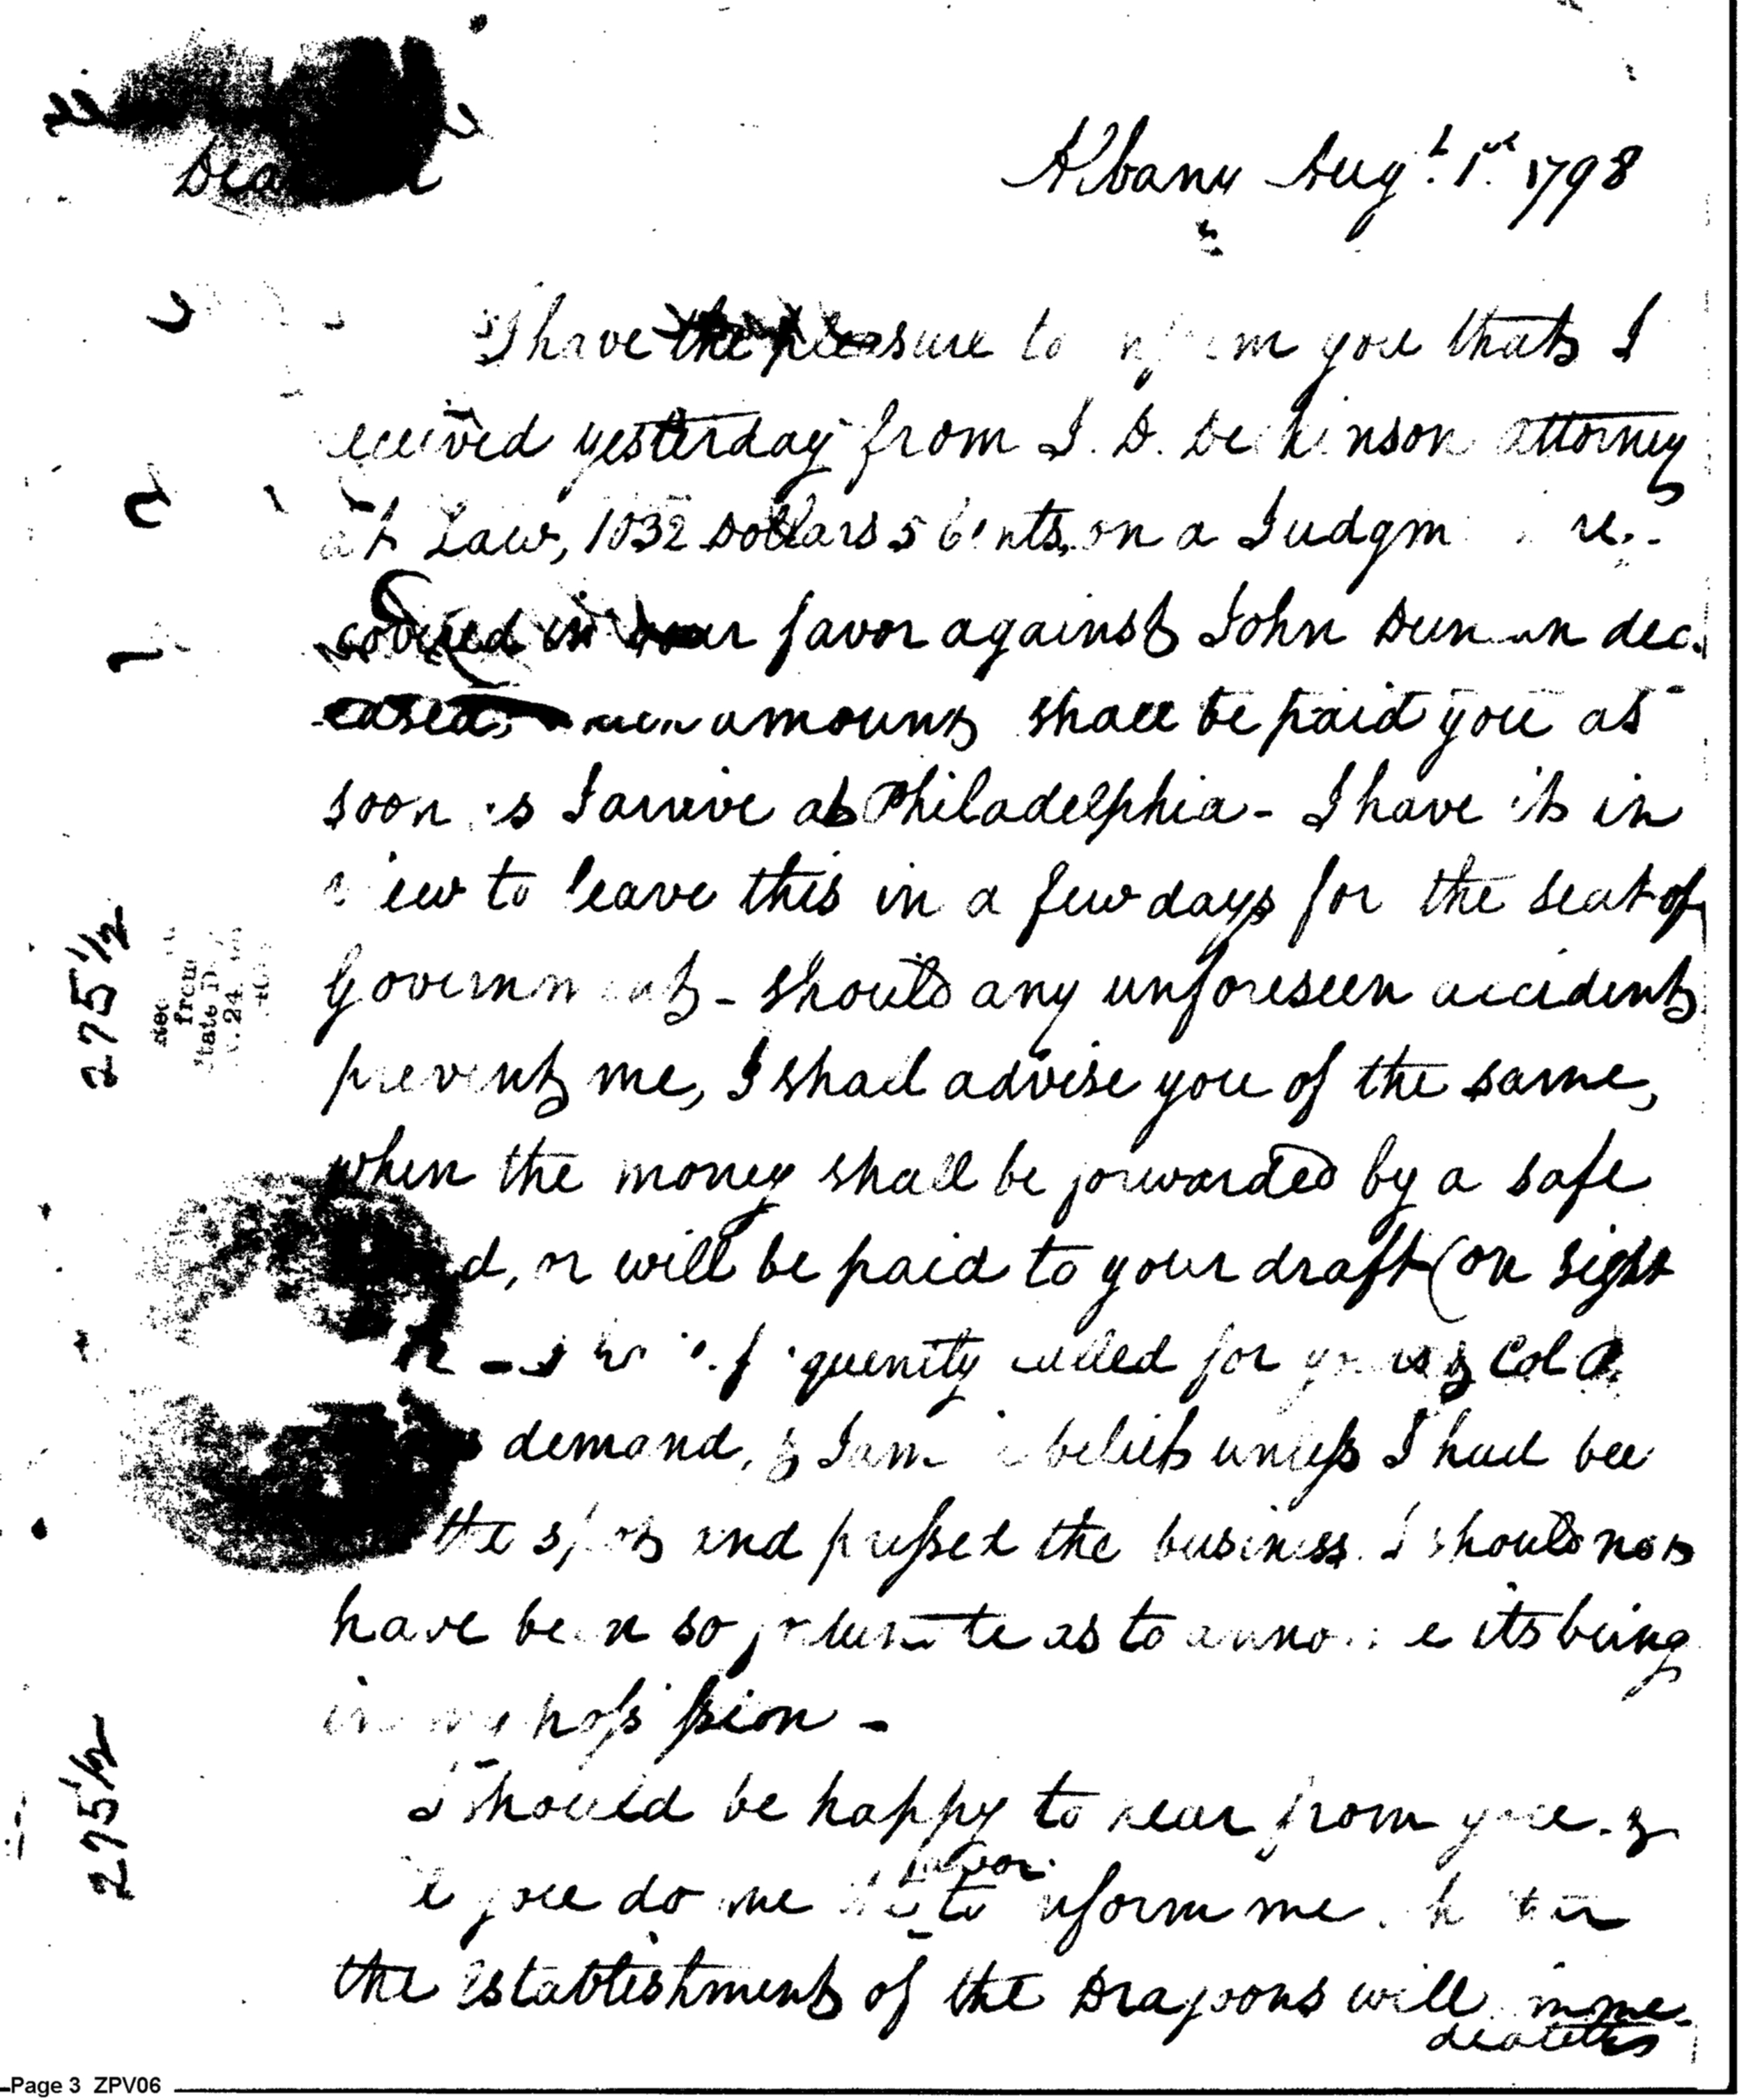 Albany Augt. 1st 1798
Dea
I have the pleasure to inform you that I
received yesterday from J. D. Dickinson attorney
at Law, 1032 Dollars 5 Cents, on a Judgment re-
covered in your favor against John Duncan dec-
eased, amount shall be paid you as
soon as I arrive at Philadelphia - I have it in
view to leave this in a few days for the seat of
Government - should any unforeseen accident
prevent me, I shall advise you of the same,
when the money shall be forwarded by a safe
or will be paid to your draft (on sight
called for Col
demand, & I am belief unless I had bee
the spot and pressed the business. I should not
have been so fortunate as to announce its being
in my possession -
I should be happy to hear from you. &
you do me the favor to inform me whether
the establishment of the Dragoons will imme-
diately
275½
from
24
275½
Page 3 ZPV06